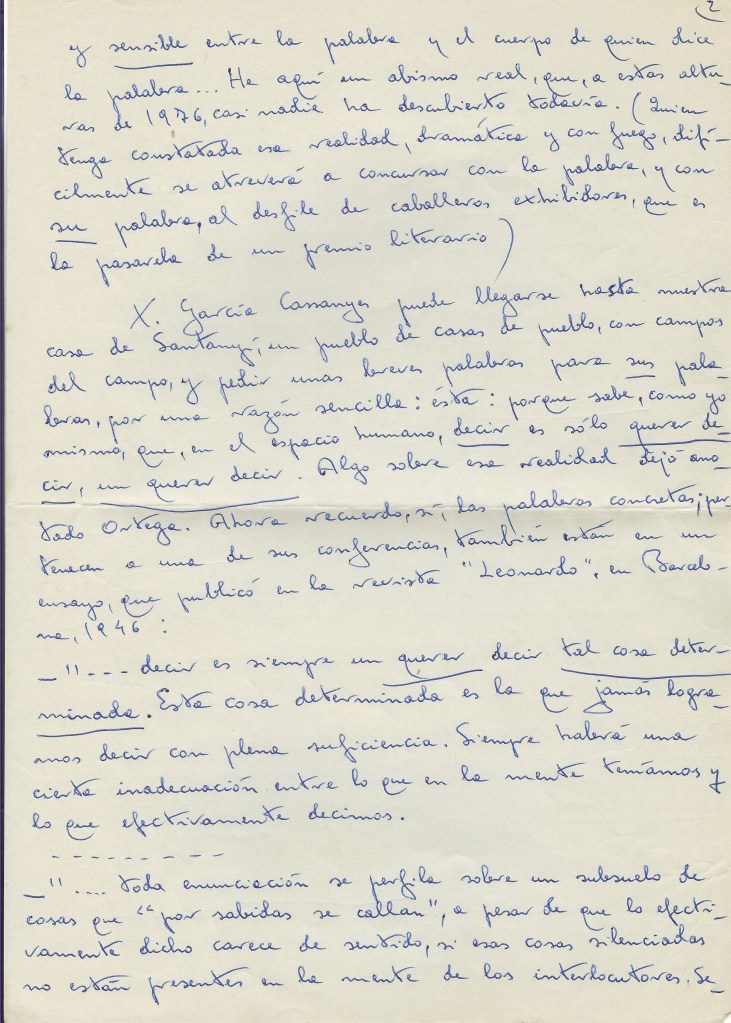 2
y sensible entre la palabra y el cuerpo de quien dice
la palabra... He aquí un abismo real, que, a estas altu-
ras de 1976, casi nadie ha descubierto todavía. (Quien
tenga constatada esa realidad, dramática y con fuego, difí-
cilmente se atreverá a concursar con la palabra, y con
su palabra, al desfile de caballeros exhibidores, que es
la pasarela de un premio literario)
X. García Cassanyes puede llegarse hasta nuestra
casa de Santanyí, un pueblo de casas de pueblo, con campos
del campo, y pedir unas breves palabras para sus pala-
bras, por una razón sencilla: ésta: porque sabe, como yo
mismo, que, en el espacio humano, decir es sólo querer de-
cir, un querer decir. Algo sobre esa realidad dejó ano-
tado Ortega. Ahora recuerdo, sí, las palabras concretas; per-
tenecen a una de sus conferencias, también están en un
ensayo, que publicó en la revista "Leonardo", en Barcelo-
na, 1946:
—"--- decir es siempre un querer decir tal cosa deter-
minada. Esta cosa determinada es la que jamás logra-
mos decir con plena suficiencia. Siempre habrá una
cierta inadecuación entre lo que en la mente teníamos y
lo que efectivamente decimos.
- - - - - - - - -
—".... toda enunciación se perfila sobre un subsuelo de
cosas que "por sabidas se callan", a pesar de que lo efecti-
vamente dicho carece de sentido, si esas cosas silenciadas
no están presentes en la mente de los interlocutores. Se-